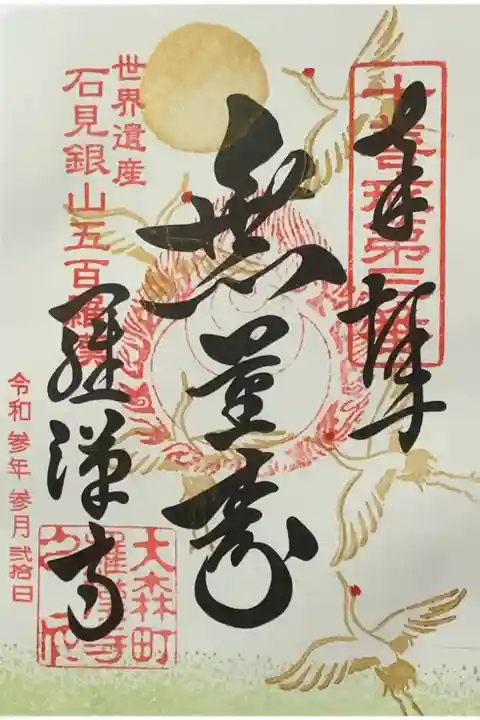 奉拝
無量寿
世界遺産
石見銀山五百羅漢
羅漢寺
令和参年参月弐拾日
大森町
羅漢寺